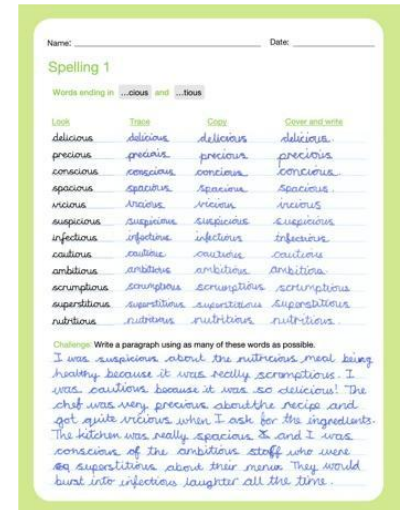 Name: Date:
Spelling 1
Words ending in ...cious and ...tious
Look Trace Copy Cover and write
delicious delicious delicious delicious.
precious precious precious precious
conscious conscious concious concious.
spacious spacious spacious spacious.
vicious vicious vicious vicious
suspicious suspicious suspicious suspicious
infectious infectious infectious infectious.
cautious cautious cautious cautious
ambitious ambitious ambitious ambitious
scrumptious scrumptious scrumptious scrumptious
superstitious superstitious superstitious superstitious
nutritious nutritious nutritious nutritious.
Challenge: Write a paragraph using as many of these words as possible.
I was suspicious about the nutricious meal being
healthy because it was really scromptious. I
was cautious because it was so delicious! The
chef was very precious about the recipe and
got quite vicious when I ask for the ingredients.
The kitchen was really spacious and I was
conscious of the ambitious staff who were
superstitious about their menu. They would
burst into infectious laughter all the time.